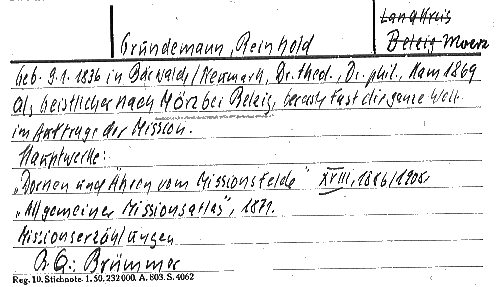 Landkreis
Gründemann, Reinhold Belzig Moerz
geb. 9.1.1836 in Bärwalde/Neumark, Dr. theol., Dr. phil., kam 1869
als Geistlicher nach Mörz bei Belzig, bereiste fast die ganze Welt
im Auftrage der Mission.
Hauptwerke:
„Dornen und Ähren vom Missionsfelde" XVIII, 1896/1905
„Allgemeiner Missionsatlas", 1871.
Missionserzählungen
B. Q.: Brümmer
Reg. 10. Stichnote. 1. 50. 232000. A. 803. S. 4062